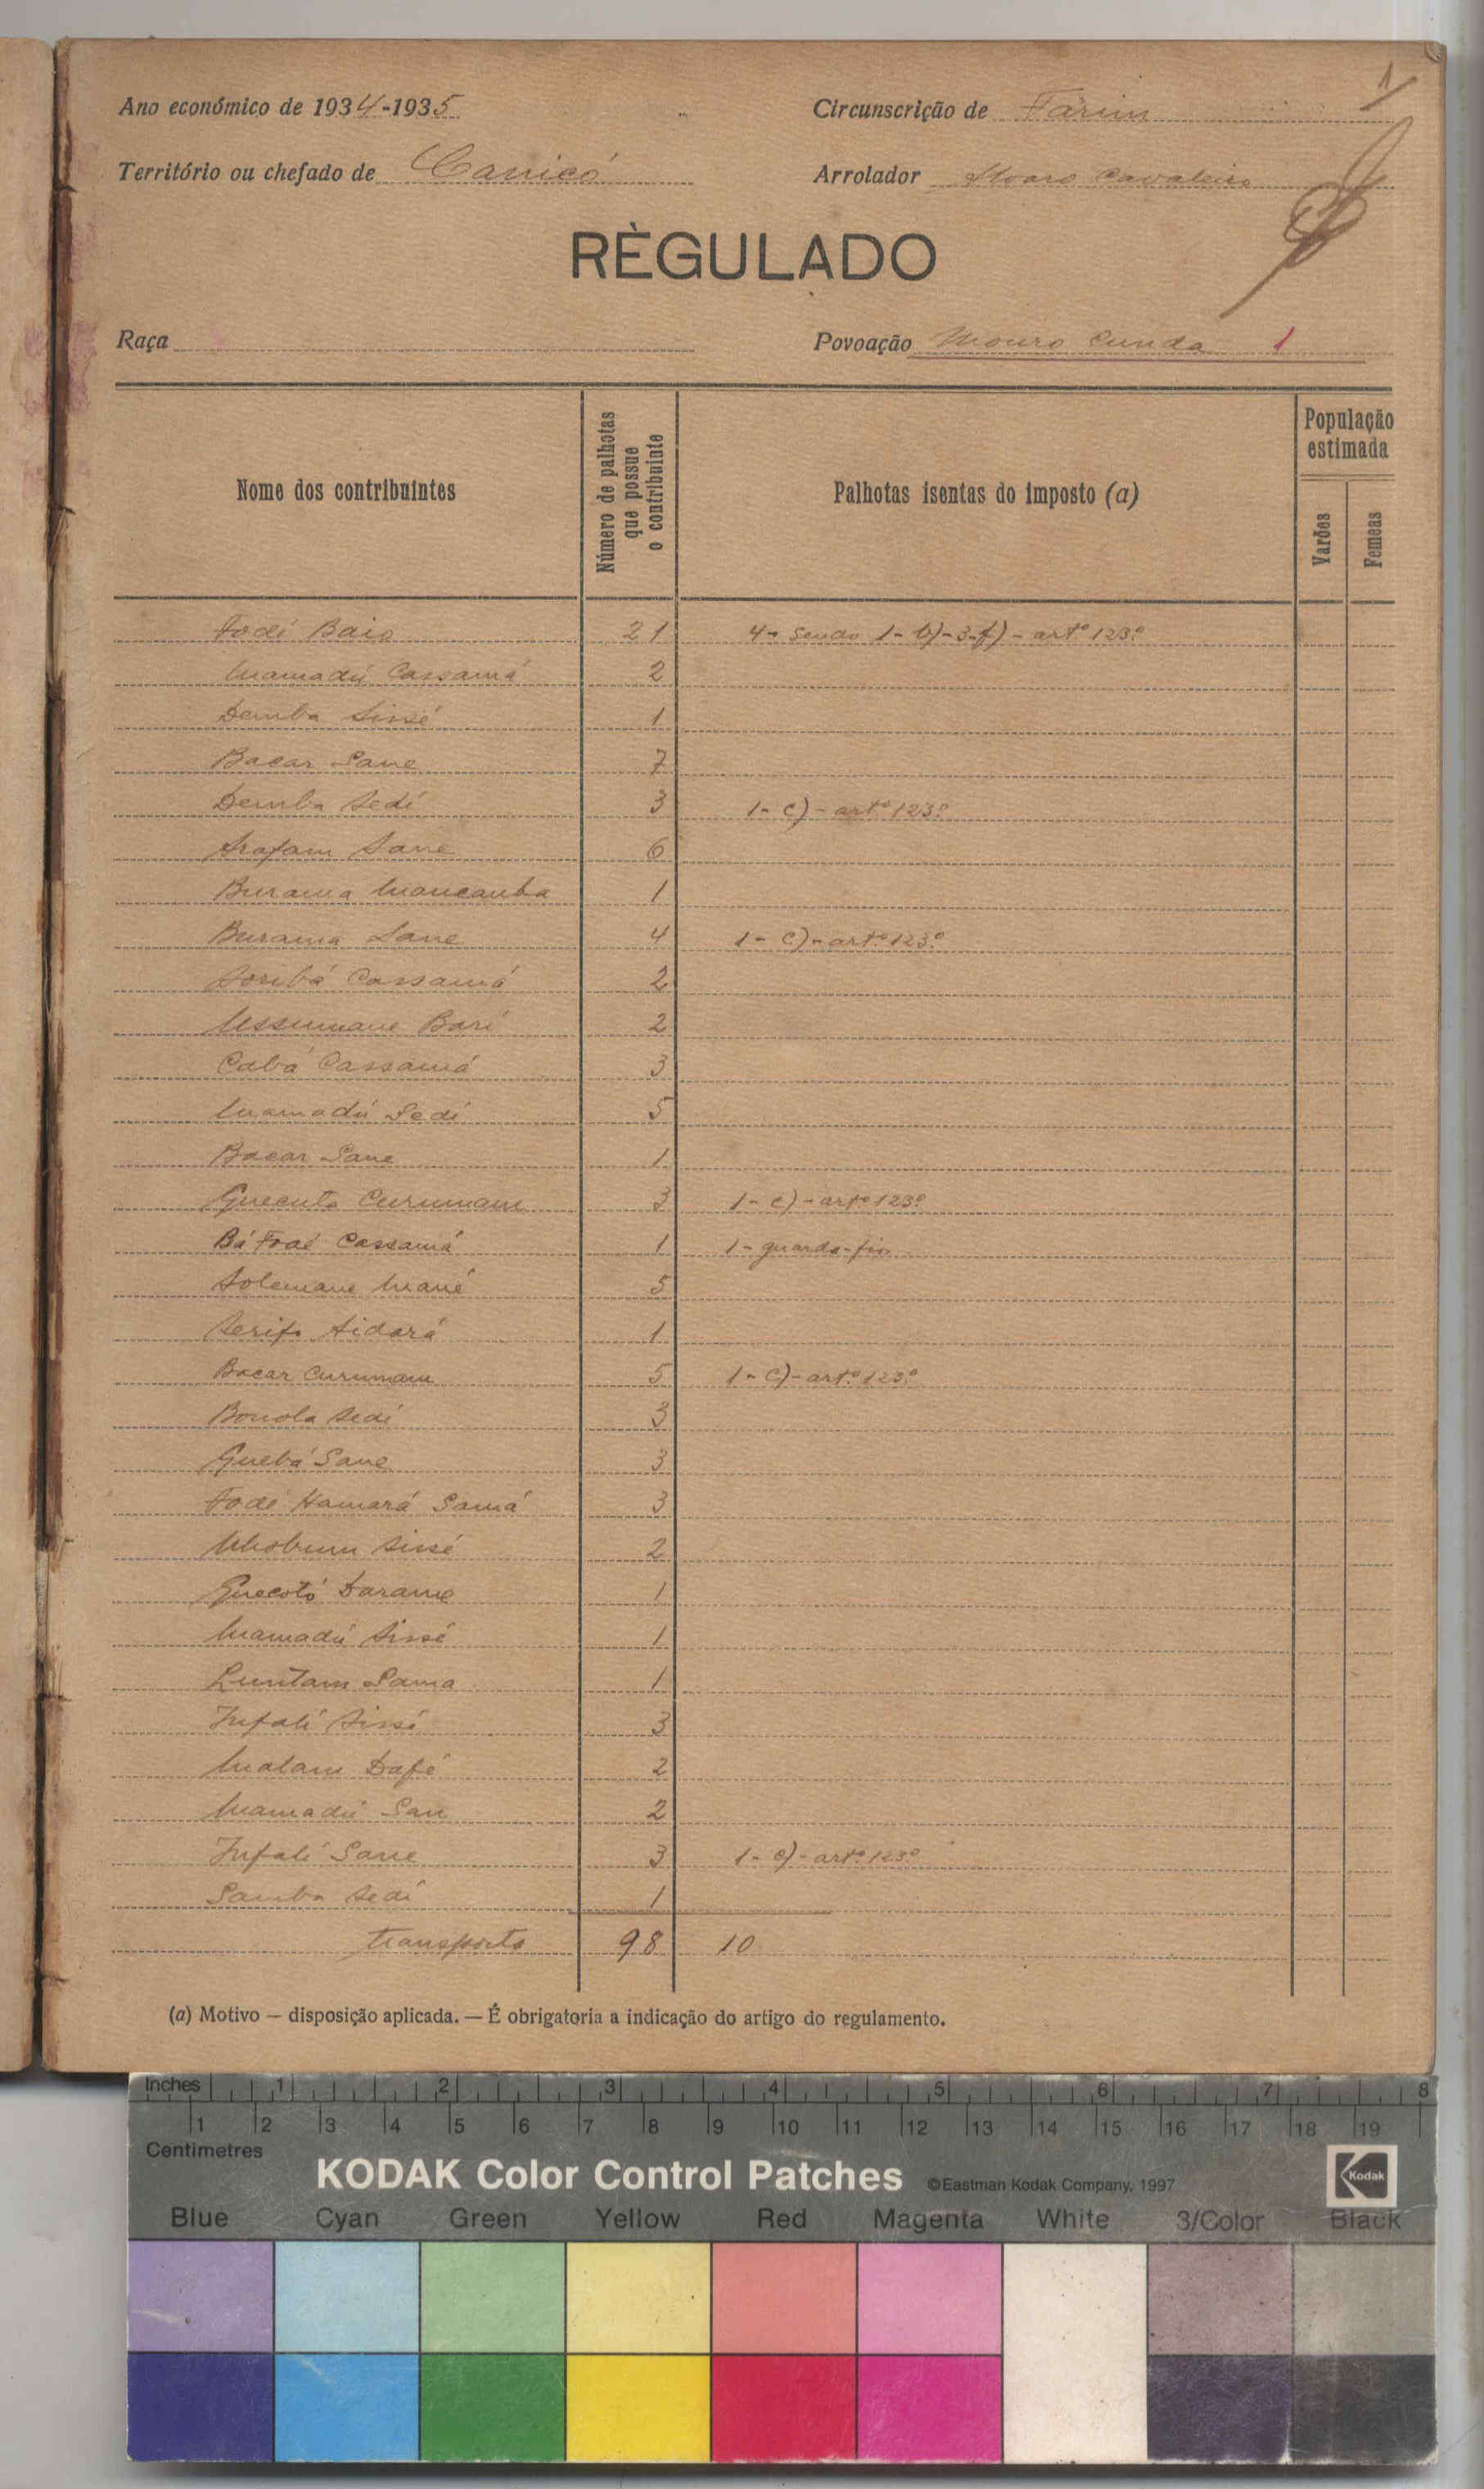 1
Ano económico de 1934-1935
Circunscrição de Farim
Território ou chefado de Canicó
Arrolador Alvaro Cavaleiro
RÈGULADO
Raça
Povoação Mouro Cunda 1
Nome dos contribuintes
Número de palhotas que possue o contribuinte
Palhotas isentas do imposto (a)
População estimada
Varões
Femeas
Fodé Baio 21 4- sendo 1- b)-3-f) - artº 123º
Mamadú Cassamá 2
Demba Sissé 1
Bacar Sane 7
Demba Sedi 3 1- c) - artº 123º
Arafam Sane 6
Burama Mancanba 1
Burama Sane 4 1- c) - artº 123º
Soribá Cassamá 2
Ussumane Bari 2
Cabá Cassamá 3
Mamadú Sedi 5
Bacar Sane 1
Quecuta Curumam 3 1- c) - artº 123º
Bá Fodé Cassamá 1 1- guarda-fios
Solemane Mané 5
Serifo Aidará 1
Bacar Curumam 5 1- c) - artº 123º
Bonola Sedi 3
Quebá Sane 3
Fodé Hamará Samá 3
Sissé 2
Quecotó Darame 1
Mamadú Sissé 1
Luntam Sama 1
Infali Sissé 3
Malam Dafé 2
Mamadú San 2
Infali Sane 3 1- c) - artº 123º
Samba Sedi 1
transporte 98 10
(a) Motivo — disposição aplicada. — É obrigatoria a indicação do artigo do regulamento.
Inches 1 2 3 4 5 6 7 8
1 2 3 4 5 6 7 8 9 10 11 12 13 14 15 16 17 18 19
Centimetres
KODAK Color Control Patches ©Eastman Kodak Company, 1997 Kodak
Blue Cyan Green Yellow Red Magenta White 3/Color Black